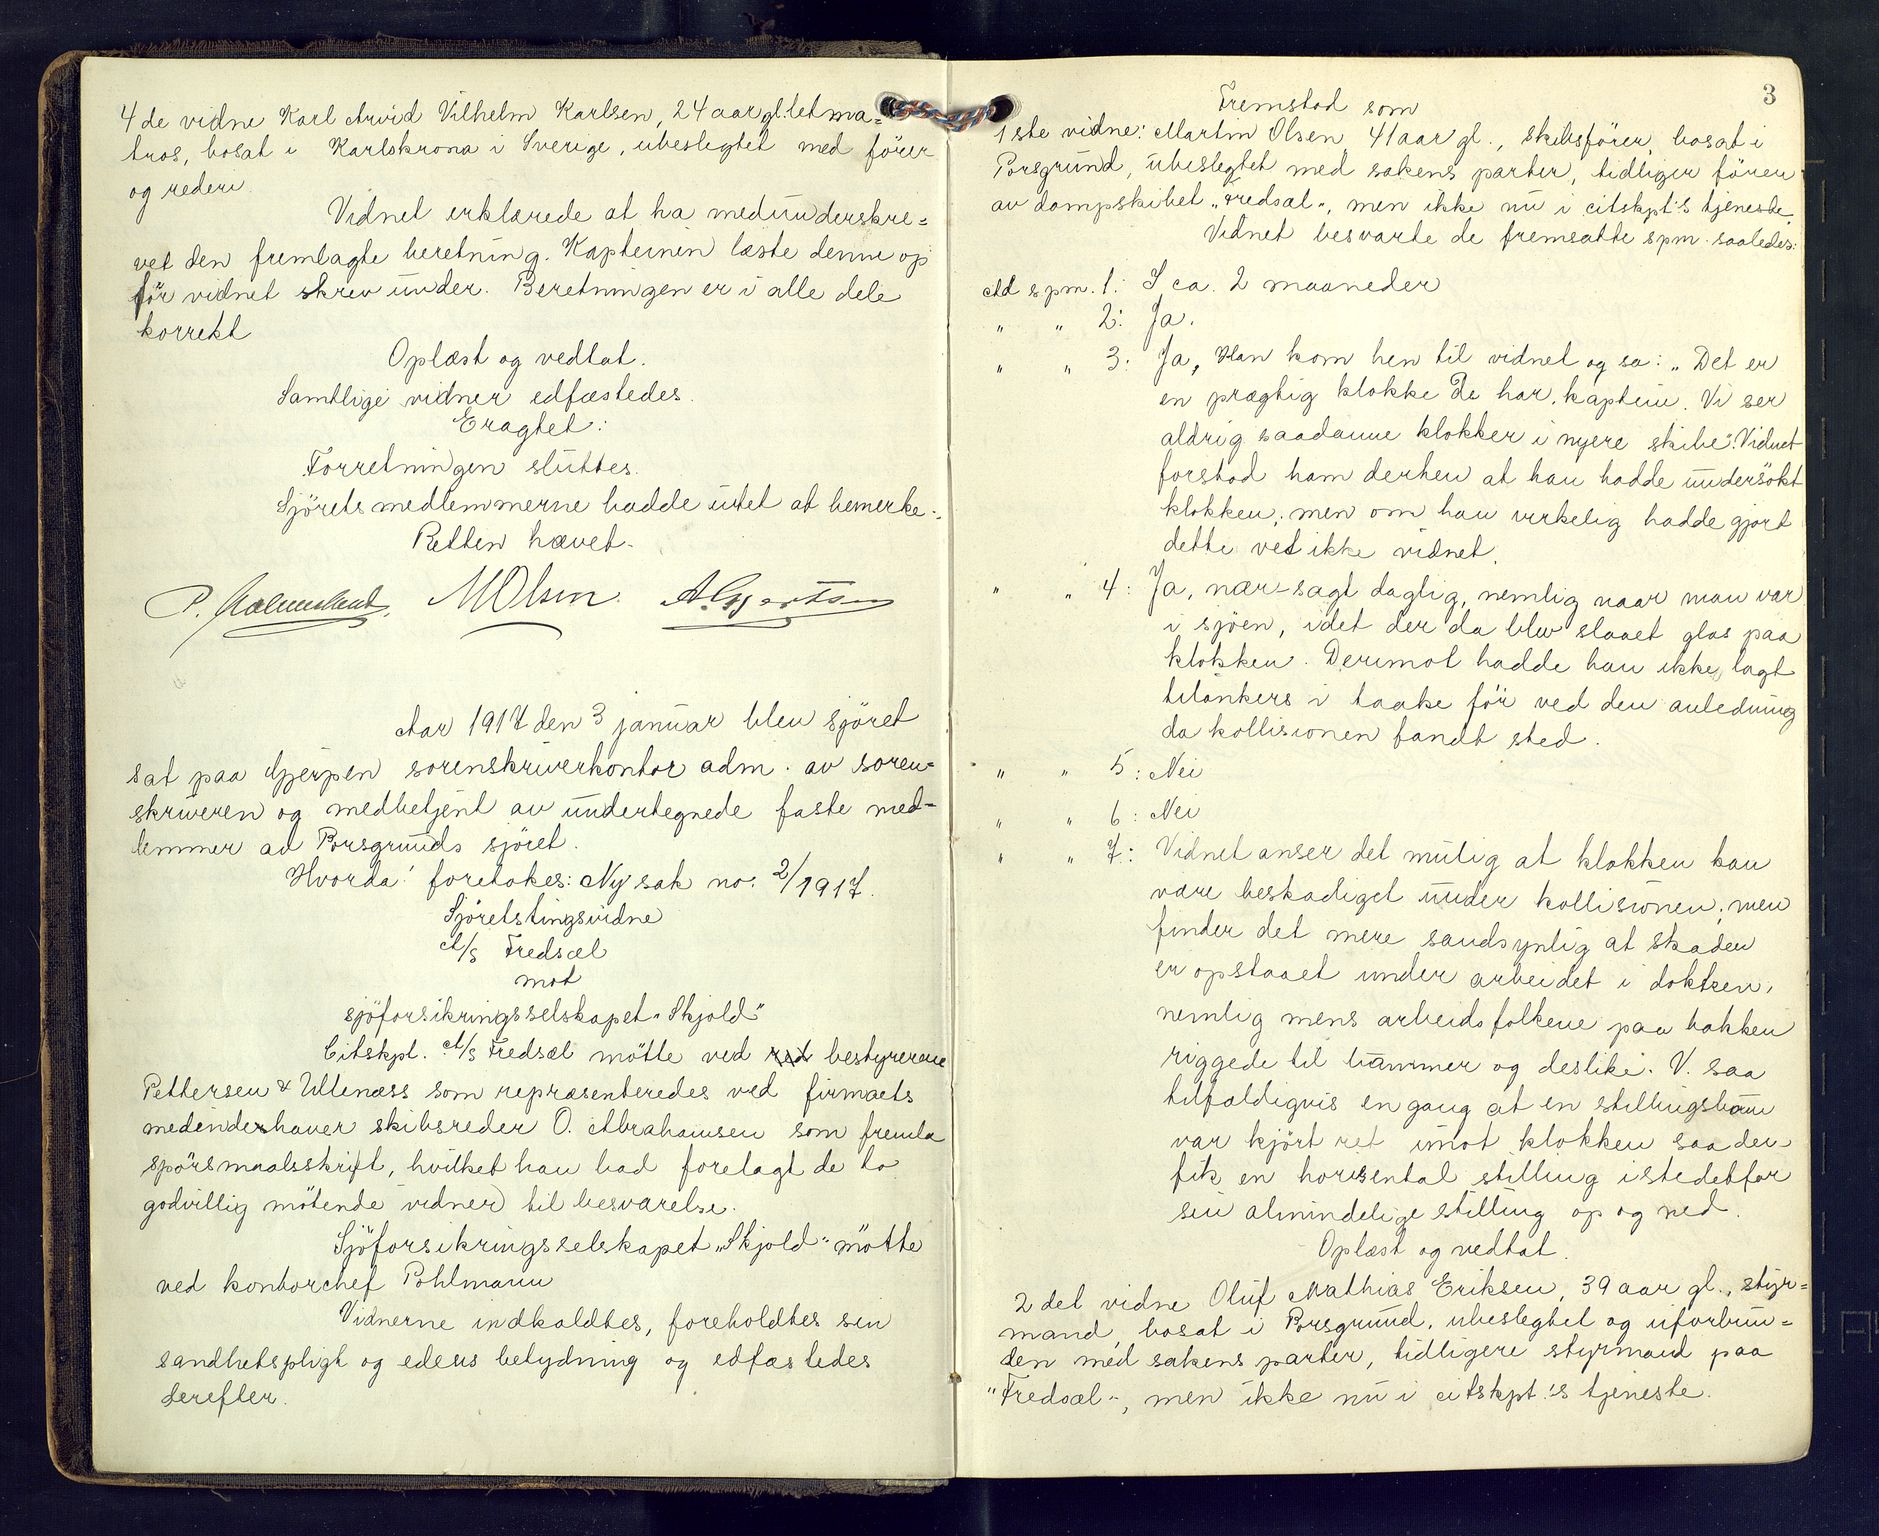 4de vidne Karl Arvid Vilhelm Karlsen, 24 aar gl. letma-
tros, bosat i Karlskrona i Sverige, ubeslegtet med fører
og rederi.
Vidnet erklærede at ha medunderskre-
vet den fremlagte beretning. Kapteinen læste denne op
før vidnet skrev under. Beretningen er i alle dele
korrekt
Oplæst og vedtat.
Samtlige vidner edfæstedes.
Eragtet:
Forretningen sluttes.
Sjöretsmedlemmerne hadde intet at bemerke.
Retten hævet.
P. MOlsen. A. Gjertsen
Aar 1917 den 3 januar blev sjöret
sat paa Gjerpen sorenskriverkontor adm. av soren-
skriveren og medbetjent av undertegnede faste med-
lemmer av Porsgrunds sjöret.
Hvorda! foretokes: Ny sak no. 2/1917.
Sjöretstingsvidne
A/S Fredsæl
mot
sjöforsikringsselskapet "Skjold"
Citskpt. A/S Fredsæl mötte ved bestyrerne
Pettersen & Ullenæss som repræsenteredes ved firmaets
medindehaver skibsreder O. Abrahamsen som fremla
spörsmaalsskrift, hvilket han bad forelagt de to
godvillig mötende vidner til besvarelse.
Sjöforsikringsselskapet "Skjold" mötte
ved kontorchef Pohlmann
Vidnerne indkaldtes, foreholdtes sin
sandhetspligt og edens betydning og edfæstedes
derefter.
3
Fremstod som
1ste vidne: Martin Olsen, 41 aar gl., skibsfører, bosat i
Porsgrund, ubeslegtet med sakens parter, tidliger fören
av dampskibet "Fredsæl", men ikke nu i citskpt's tjeneste.
Vidnet besvarte de fremsatte spm. saaledes:
Ad spm. 1: I ca. 2 maaneder
" " 2: Ja.
" " 3: Ja, Han kom hen til vidnet og sa: "Det er
en prægtig klokke De har, kaptein. Vi ser
aldrig saadanne klokker i nyere skibe". Vidnet
forstod ham derhen at han hadde undersökt
klokken, men om han virkelig hadde gjort
dette vet ikke vidnet.
" " 4: Ja, nær-sagt daglig, nemlig naar man var
i sjöen, idet der da blev slaaet glas paa
klokken. Derimot hadde han ikke lagt
tilankers i taake för ved den anledning
da kollisionen fandt sted.
" " 5: Nei
" " 6: Nei
" " 7: Vidnet anser det mulig at klokken kan
være beskadiget under kollisionen, men
finder det mere sandsynlig at skaden
er opstaaet under arbeidet i dokken,
nemlig mens arbeidsfolkene paa bakken
riggede til tömmer og deslike. V. saa
tilfældigvis en gang at en stillingsbom
var kjört ret imot klokken saa den
fik en horisental stilling istedetfor
sin almindelige stilling op og ned.
Oplæst og vedtat.
2det vidne Oluf Mathias Eriksen, 39 aar gl., styr-
mand, bosat i Porsgrund, ubeslegtet og uforbun-
den med sakens parter, tidligere styrmand paa
"Fredsæl", men ikke nu i citskpt.'s tjeneste.